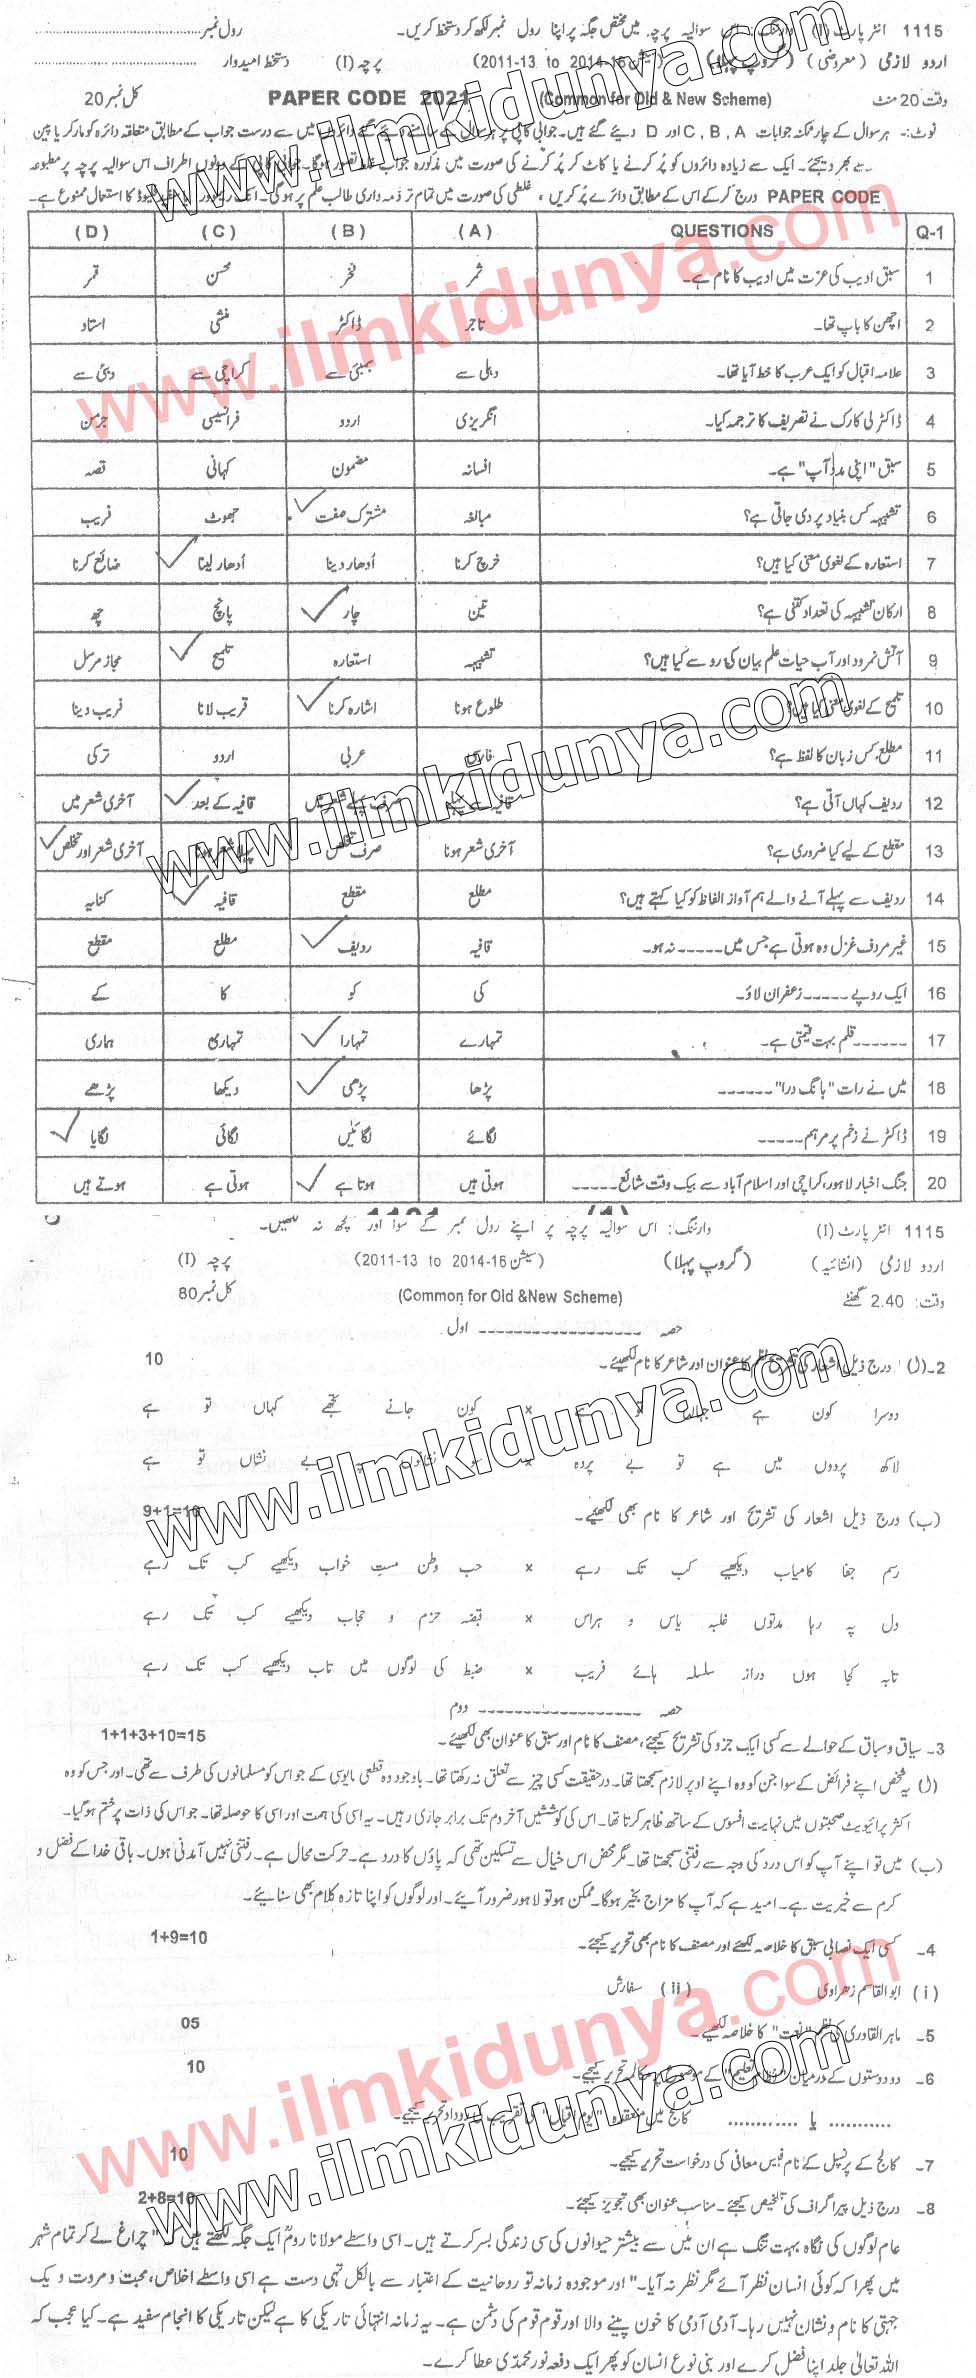 1115 انٹر پارٹ (I) وارننگ: اس سوالیہ پرچہ میں مختص جگہ پر اپنا رول نمبر لکھ کر دستخط کریں۔ رول نمبر
اردو لازمی (معروضی) (گروپ پہلا) (سیشن 2011-13 to 2014-16) پرچہ (I) دستخط امیدوار
وقت 20 منٹ (Common for Old & New Scheme) PAPER CODE 2021 کل نمبر 20
نوٹ:- ہر سوال کے چار ممکنہ جوابات C, B, A اور D دیئے گئے ہیں۔ جوابی کاپی پر ہر سوال کے سامنے دیئے گئے دائروں میں سے درست جواب کے مطابق متعلقہ دائرہ کو مارکر یا پین
سے بھر دیجئے۔ ایک سے زیادہ دائروں کو پُر کرنے یا کاٹ کر پُر کرنے کی صورت میں مذکورہ جواب غلط تصور ہوگا۔ جوابی کاپی کے دونوں اطراف اس سوالیہ پرچہ پر مطبوعہ
PAPER CODE درج کرکے اس کے مطابق دائرے پُر کریں، غلطی کی صورت میں تمام تر ذمہ داری طالب علم پر ہوگی۔ کا استعمال ممنوع ہے۔
Q-1 QUESTIONS (A) (B) (C) (D)
1 سبق ادیب کی عزت میں ادیب کا نام ہے۔ ثمر فخر محسن قمر
2 اچھن کا باپ تھا۔ تاجر ڈاکٹر منشی استاد
3 علامہ اقبال کو ایک عرب کا خط آیا تھا۔ دہلی سے بمبئی سے کراچی سے دبئی سے
4 ڈاکٹر لی کارک نے تصریف کا ترجمہ کیا۔ انگریزی اردو فرانسیسی جرمن
5 سبق "اپنی مدد آپ" ہے۔ افسانہ مضمون کہانی قصہ
6 تشبیہہ کس بنیاد پر دی جاتی ہے؟ مبالغہ مشترک صفت جھوٹ فریب
7 استعارہ کے لغوی معنی کیا ہیں؟ خرچ کرنا اُدھار دینا اُدھار لینا ضائع کرنا
8 ارکان تشبیہہ کی تعداد کتنی ہے؟ تین چار پانچ چھ
9 آتش نمرود اور آب حیات علم بیان کی رو سے کیا ہیں؟ تشبیہہ استعارہ تلمیح مجاز مرسل
10 تلمیح کے لغوی معنی کیا ہیں؟ طلوع ہونا اشارہ کرنا قریب لانا فریب دینا
11 مطلع کس زبان کا لفظ ہے؟ فارسی عربی اردو ترکی
12 ردیف کہاں آتی ہے؟ قافیہ سے پہلے صرف پہلے شعر میں قافیہ کے بعد آخری شعر میں
13 مقطع کے لیے کیا ضروری ہے؟ آخری شعر ہونا صرف تخلص پہلا شعر ہونا آخری شعر اور تخلص
14 ردیف سے پہلے آنے والے ہم آواز الفاظ کو کیا کہتے ہیں؟ مطلع مقطع قافیہ کنایہ
15 غیر مردف غزل وہ ہوتی ہے جس میں ----- نہ ہو۔ قافیہ ردیف مطلع مقطع
16 ایک روپے ----- زعفران لاؤ۔ کی کو کا کے
17 ------ قلم بہت قیمتی ہے۔ تمہارے تمہارا تمہاری ہماری
18 میں نے رات "بانگ درا" ------ پڑھا پڑھی دیکھا پڑھے
19 ڈاکٹر نے زخم پر مرہم ----- لگائے لگائیں لگائی لگایا
20 جنگ اخبار لاہور، کراچی اور اسلام آباد سے بیک وقت شائع ----- ہوتی ہیں ہوتا ہے ہوتی ہے ہوتے ہیں
1115 انٹر پارٹ (I) وارننگ: اس سوالیہ پرچہ پر اپنے رول نمبر کے سوا اور کچھ نہ لکھیں۔
اردو لازمی (انشائیہ) (گروپ پہلا) (سیشن 2011-13 to 2014-16) پرچہ (I)
وقت: 2.40 گھنٹے (Common for Old &New Scheme) کل نمبر 80
حصہ ------------------ اول
2۔ (ل) درج ذیل اشعار کی تشریح نظم کا عنوان اور شاعر کا نام لکھیئے۔ 10
دوسرا کون ہے جہاں تو ہے × کون جانے تجھے کہاں تو ہے
لاکھ پردوں میں ہے تو بے پردہ × سو نشانوں پہ بے نشاں تو ہے
(ب) درج ذیل اشعار کی تشریح اور شاعر کا نام بھی لکھیئے۔ 9+1=10
رسم جفا کامیاب دیکھیے کب تک رہے × حب وطن مست خواب دیکھیے کب تک رہے
دل پہ رہا مدتوں غلبہ یاس و ہراس × قبضہ حزم و حجاب دیکھیے کب تک رہے
تابہ کجا ہوں دراز سلسلہ ہائے فریب × ضبط کی لوگوں میں تاب دیکھیے کب تک رہے
حصہ ------------------ دوم
3۔ سیاق و سباق کے حوالے سے کسی ایک جزو کی تشریح کیجئے، مصنف کا نام اور سبق کا عنوان بھی لکھیئے۔ 1+1+3+10=15
(ل) یہ شخص اپنے فرائض کے سوا جن کو وہ اپنے اوپر لازم سمجھتا تھا۔ درحقیقت کسی چیز سے تعلق نہ رکھتا تھا۔ باوجود وہ قطعی مایوسی کے جو اس کو مسلمانوں کی طرف سے تھی۔ اور جس کو وہ
اکثر پرائیویٹ صحبتوں میں نہایت افسوس کے ساتھ ظاہر کرتا تھا۔ اس کی کوششیں آخر دم تک برابر جاری رہیں۔ یہ اسی کی ہمت اور اسی کا حوصلہ تھا۔ جو اس کی ذات پر ختم ہوگیا۔
(ب) میں تو اپنے آپ کو اس درد کی وجہ سے رفتنی سمجھتا تھا۔ مگر محض اس خیال سے تسکین تھی کہ پاؤں کا درد ہے۔ حرکت محال ہے۔ رفتنی نہیں آمدنی ہوں۔ باقی خدا کے فضل و
کرم سے خیریت ہے۔ امید ہے کہ آپ کا مزاج بخیر ہوگا۔ ممکن ہو تو لاہور ضرور آیئے۔ اور لوگوں کو اپنا تازہ کلام بھی سنایئے۔
4۔ کسی ایک نصابی سبق کا خلاصہ لکھئے اور مصنف کا نام بھی تحریر کیجئے۔ 1+9=10
(i) ابوالقاسم زھراوی (ii) سفارش
5۔ ماہر القادری کی نظم "نعت" کا خلاصہ لکھیے۔ 05
6۔ دو دوستوں کے درمیان تعلیم" کے موضوع پر مکالمہ تحریر کیجئے۔ 10
........... یا ............ کالج میں منعقدہ "یوم اقبال" کی تقریب کی روداد تحریر کیجیے۔
7۔ کالج کے پرنسپل کے نام فیس معافی کی درخواست تحریر کیجیے۔ 10
8۔ درج ذیل پیراگراف کی تلخیص کیجئے۔ مناسب عنوان بھی تجویز کیجئے۔ 2+8=10
عام لوگوں کی نگاہ بہت تنگ ہے ان میں سے بیشتر حیوانوں کی سی زندگی بسر کرتے ہیں۔ اسی واسطے مولانا رومؒ ایک جگہ لکھتے ہیں کہ "چراغ لے کر تمام شہر
میں پھرا کہ کوئی انسان نظر آئے مگر نظر نہ آیا۔" اور موجودہ زمانہ تو روحانیت کے اعتبار سے بالکل تہی دست ہے اسی واسطے اخلاص، محبت و مروت و یک
جہتی کا نام و نشان نہیں رہا۔ آدمی آدمی کا خون پینے والا اور قوم قوم کی دشمن ہے۔ یہ زمانہ انتہائی تاریکی کا ہے لیکن تاریکی کا انجام سفید ہے۔ کیا عجب کہ
اللہ تعالیٰ جلد اپنا فضل کرے اور بنی نوع انسان کو پھر ایک دفعہ نور محمدیؐ عطا کرے۔
www.ilmkidunya.com
www.ilmkidunya.com
www.ilmkidunya.com
www.ilmkidunya.com
www.ilmkidunya.com
www.ilmkidunya.com